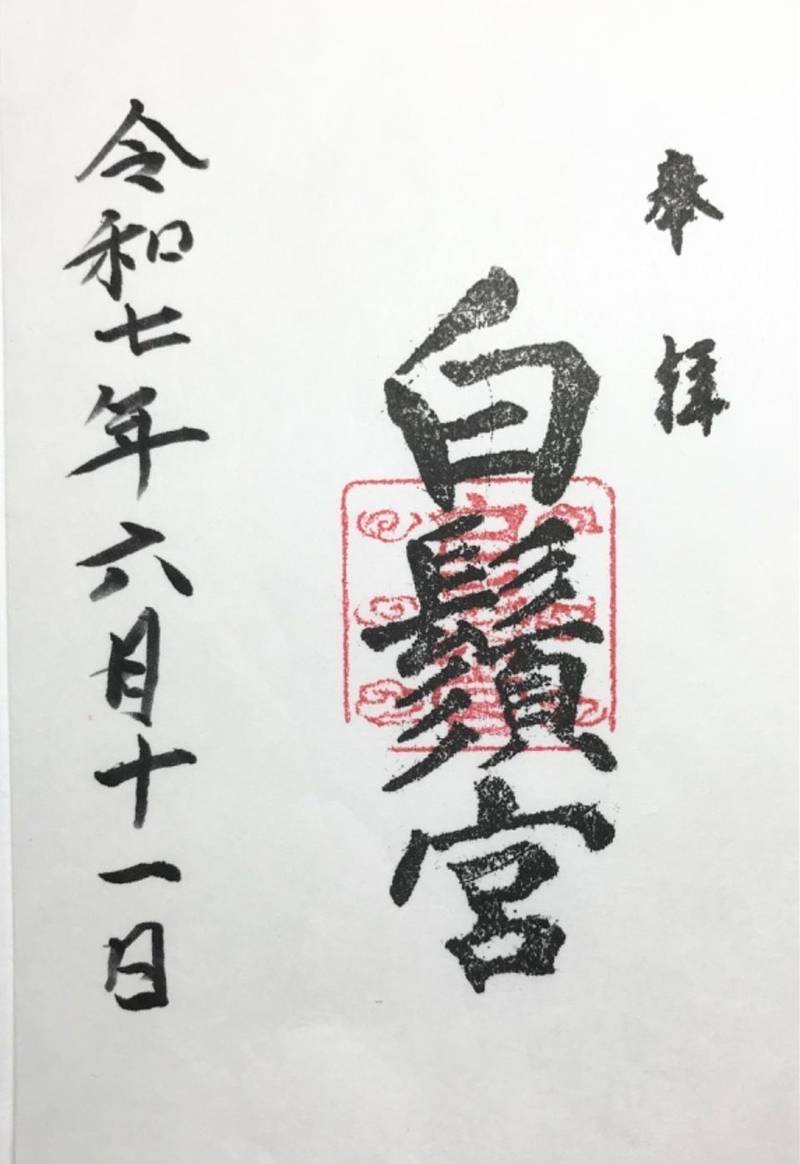 奉拝
白鬚宮
令和七年六月十一日